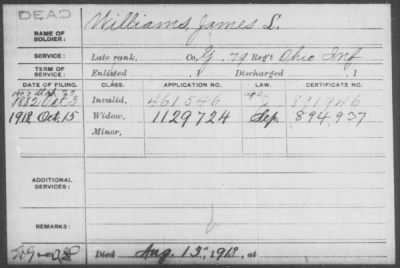 DEAD
NAME OF SOLDIER: Williams, James L.
SERVICE: Late rank, Co. G, 79 Reg't Ohio Inf
TERM OF SERVICE: Enlisted , 1 Discharged , 1
DATE OF FILING. CLASS. APPLICATION NO. LAW. CERTIFICATE NO.
1882 Oct 3 Invalid, 461.546
1918 Oct. 15 Widow, 1129724 894.937
Minor,
ADDITIONAL SERVICES:
REMARKS:
Died Aug. 13, 1918, at